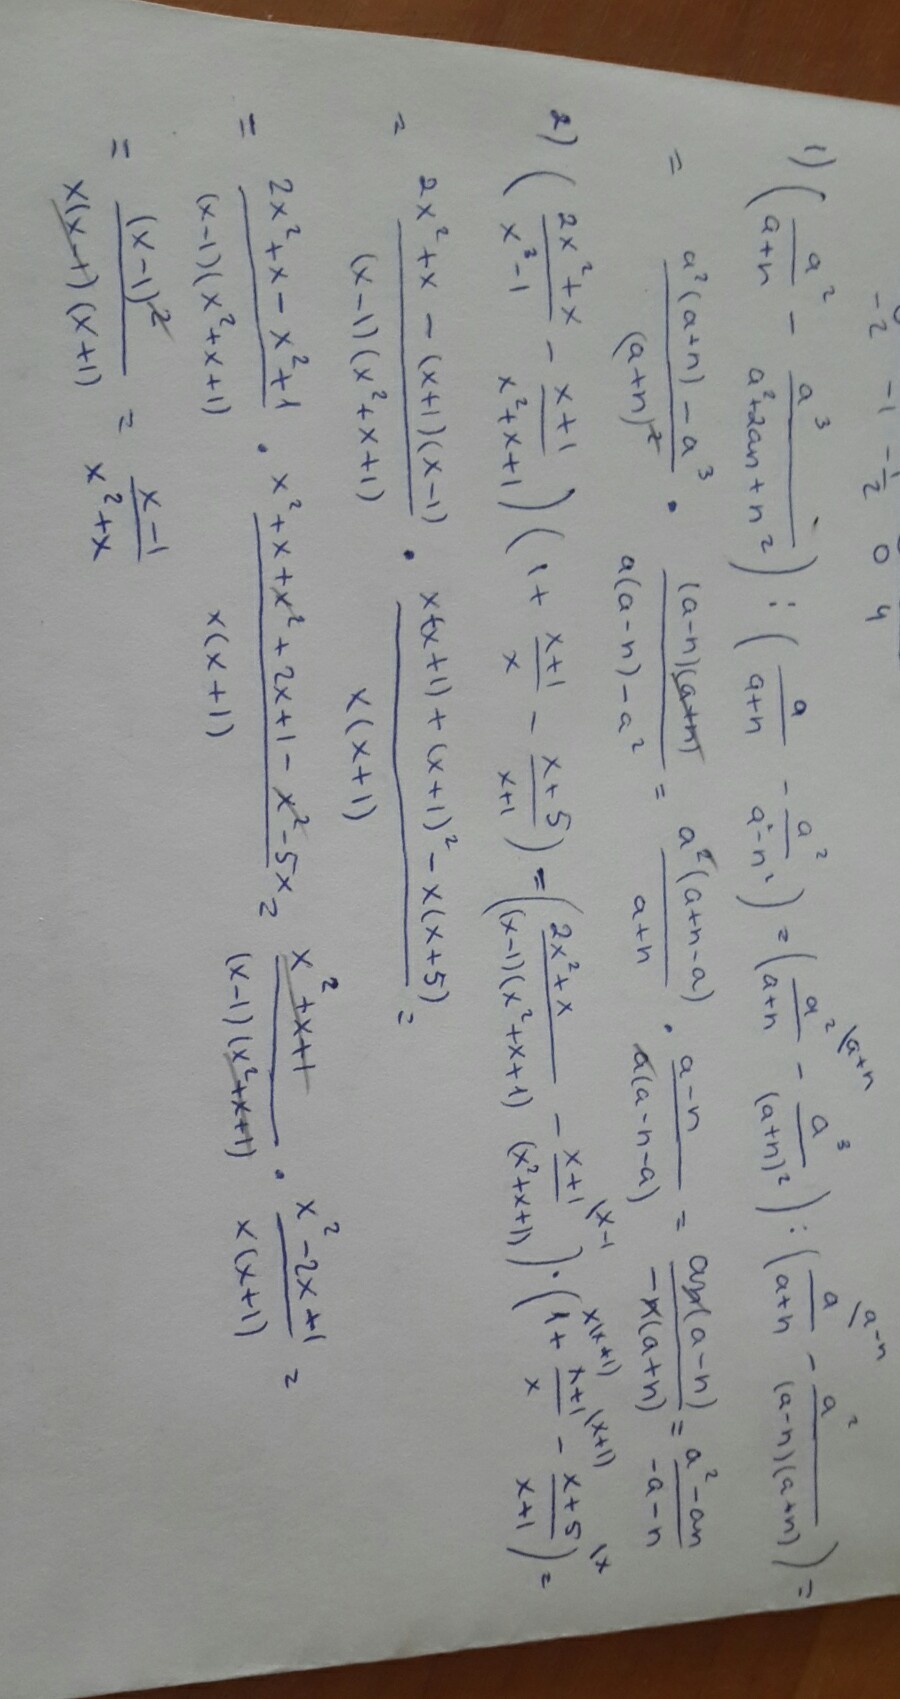 -2 -1 -1/2 0 4
1) (a²/(a+n) - a³/(a²+2an+n²)) : (a/(a+n) - a²/(a²-n²)) = (a²/(a+n) \a+n - a³/(a+n)²) : (a/(a+n) \a-n - a²/((a-n)(a+n))) =
= (a²(a+n) - a³)/(a+n)² · ((a-n)(a+n))/(a(a-n) - a²) = (a²(a+n-a))/(a+n) · (a-n)/(a(a-n-a)) = (an(a-n))/(-n(a+n)) = (a²-an)/(-a-n)
2) ((2x²+x)/(x³-1) - (x+1)/(x²+x+1)) (1 + (x+1)/x - (x+5)/(x+1)) = ((2x²+x)/((x-1)(x²+x+1)) - (x+1)/(x²+x+1) \x-1) · (1 \x(x+1) + (x+1)/x \(x+1) - (x+5)/(x+1) \x) =
= (2x²+x - (x+1)(x-1))/((x-1)(x²+x+1)) · (x(x+1) + (x+1)² - x(x+5))/(x(x+1)) =
= (2x²+x - x²+1)/((x-1)(x²+x+1)) · (x²+x+x²+2x+1 - x²-5x)/(x(x+1)) = (x²+x+1)/((x-1)(x²+x+1)) · (x²-2x+1)/(x(x+1)) =
= (x-1)²/(x(x-1)(x+1)) = (x-1)/(x²+x)